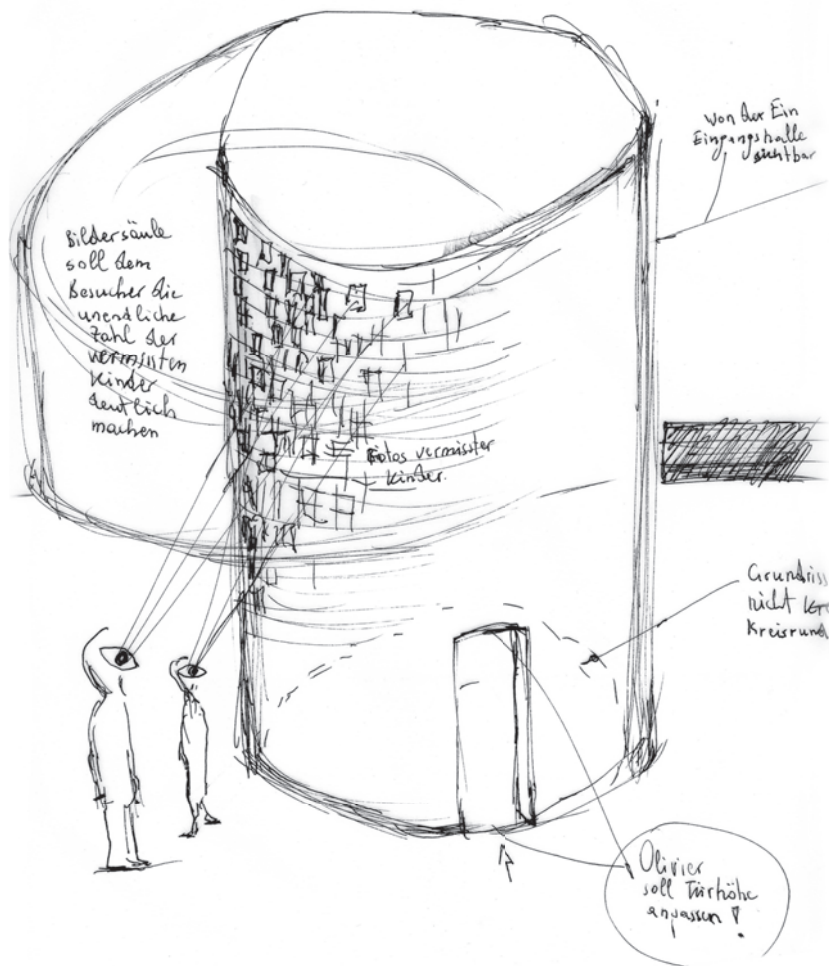 von der Ein
Eingangshalle
sichtbar
Bildersäule
soll dem
Besucher die
unendliche
Zahl der
vermissten
Kinder
deutlich
machen
Fotos vermisster
Kinder.
Grundriss
nicht
Kreisrund
Olivier
soll Türhöhe
anpassen!